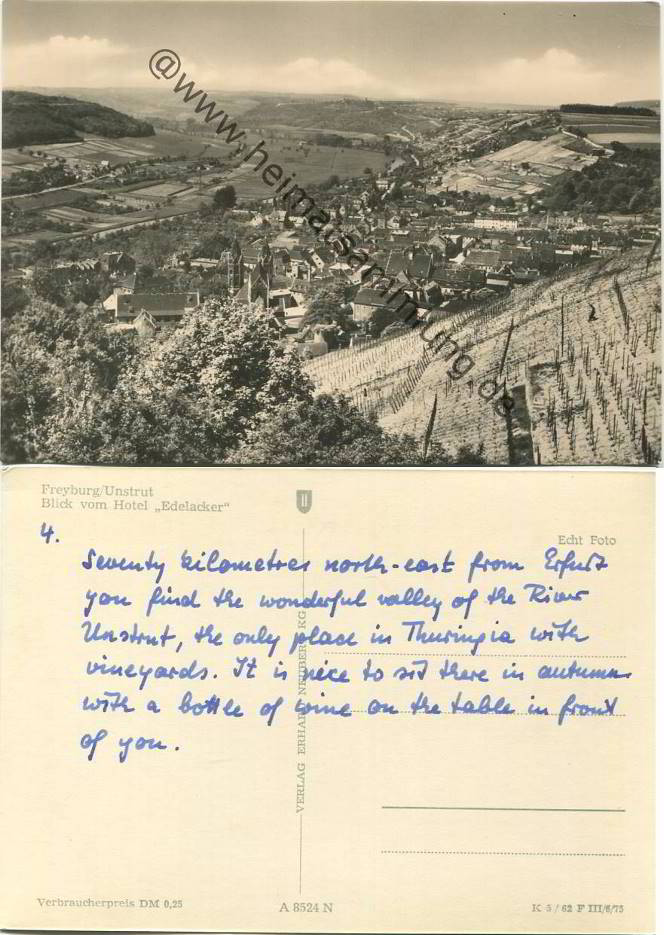 @www.heimatsammlung.de
Freyburg/Unstrut
Blick vom Hotel „Edelacker“
4.
Echt Foto
Seventy kilometres north-east from Erfurt
you find the wonderful valley of the River
Unstrut, the only place in Thuringia with
vineyards. It is nice to sit there in autumn
with a bottle of wine on the table in front
of you.
VERLAG ERHARD NEUBERT KG
Verbraucherpreis DM 0,25
A 8524 N
K 5/62 F III/6/75